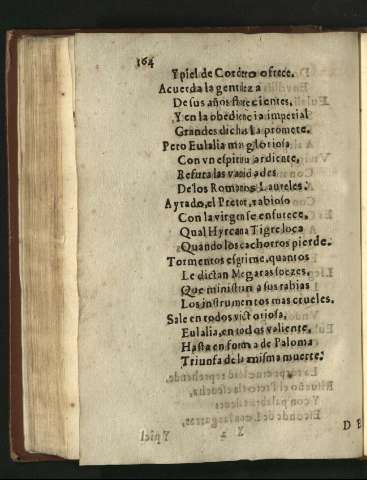 164
Y piel de Cordero ofrece.
Acuerda la gentileza
De sus años florecientes,
Y en la obediencia imperial
Grandes dichas la promete.
Pero Eulalia muy gloriosa
Con vn espiritu ardiente,
Refuta las vanidades
De los Romanos Laureles.
Ayrado, el Pretor, rabioso
Con la virgen se enfurece,
Qual Hyrcana Tigre loca
Quando los cachorros pierde.
Tormentos esgrime, quantos
Le dictan Megaras soezes,
Que ministran a sus rabias
Los instrumentos mas crueles.
Sale en todos victoriosa,
Eulalia, en todos valiente,
Hasta en forma de Paloma
Triunfa de la misma muerte.